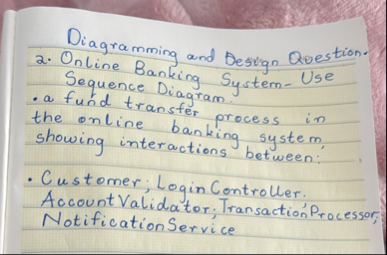 Diagramming and Design Question.
2. Online Banking System - Use
Sequence Diagram.
• a fund transfer process in
the online banking system,
showing interactions between:
• Customer; Login Controller;
Account Validator; Transaction Processor;
Notification Service